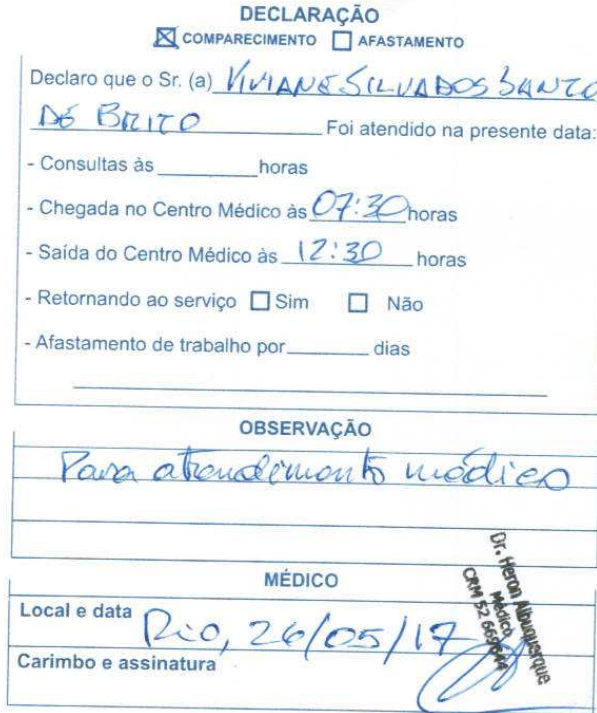 DECLARAÇÃO
☒ COMPARECIMENTO ☐ AFASTAMENTO
Declaro que o Sr. (a) VIVIANE SILVA DOS SANTO
DE BRITO Foi atendido na presente data:
- Consultas às ________ horas
- Chegada no Centro Médico às 07:30 horas
- Saída do Centro Médico às 12:30 horas
- Retornando ao serviço ☐ Sim ☐ Não
- Afastamento de trabalho por ________ dias
OBSERVAÇÃO
Para atendimento médico
MÉDICO
Local e data Rio, 26/05/17
Carimbo e assinatura
Dr. Heron Albuquerque
Médico
CRM 52